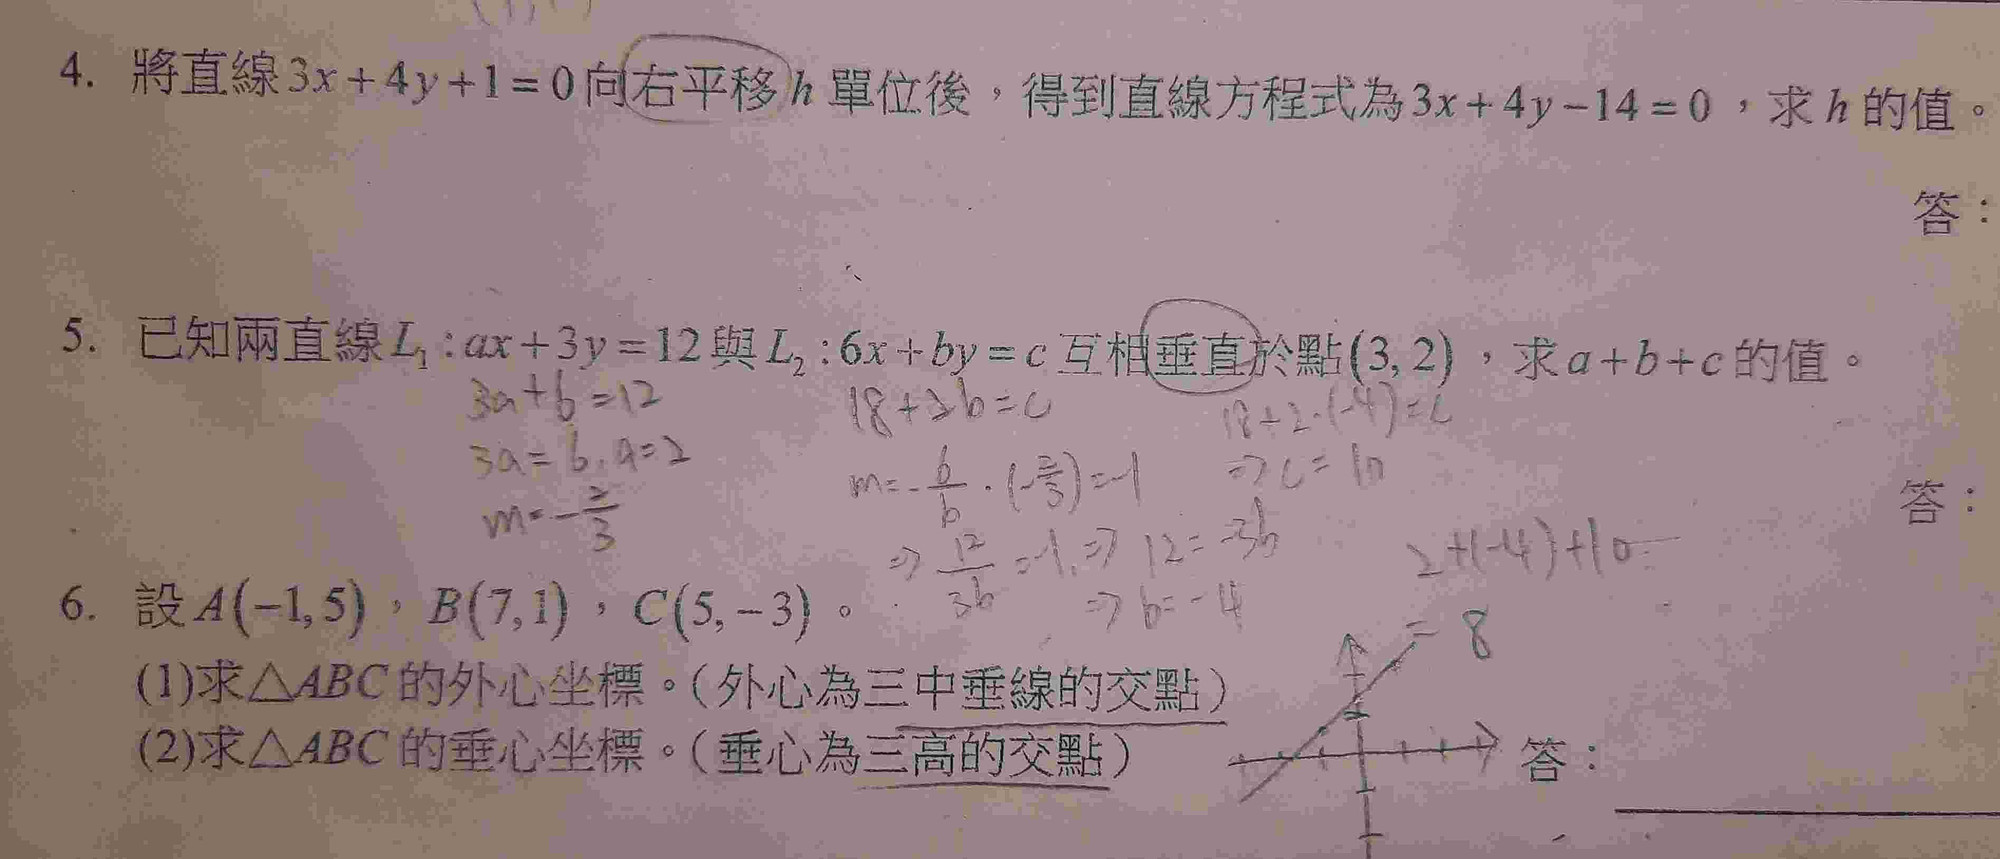 4. 將直線3x+4y+1=0向右平移h單位後，得到直線方程式為3x+4y-14=0，求h的值。
答：
5. 已知兩直線L₁:ax+3y=12與L₂:6x+by=c互相垂直於點(3,2)，求a+b+c的值。
3a+6=12 18+2b=c 18+2·(-4)=c
3a=6, a=2 m=-6/b·(-2/3)=-1 ⇒c=10
m=-2/3
答：
⇒12/3b=-1, ⇒12=-3b 2+(-4)+10
⇒b=-4
=8
6. 設A(-1,5)，B(7,1)，C(5,-3)。
(1)求△ABC的外心坐標。(外心為三中垂線的交點)
(2)求△ABC的垂心坐標。(垂心為三高的交點)
答：